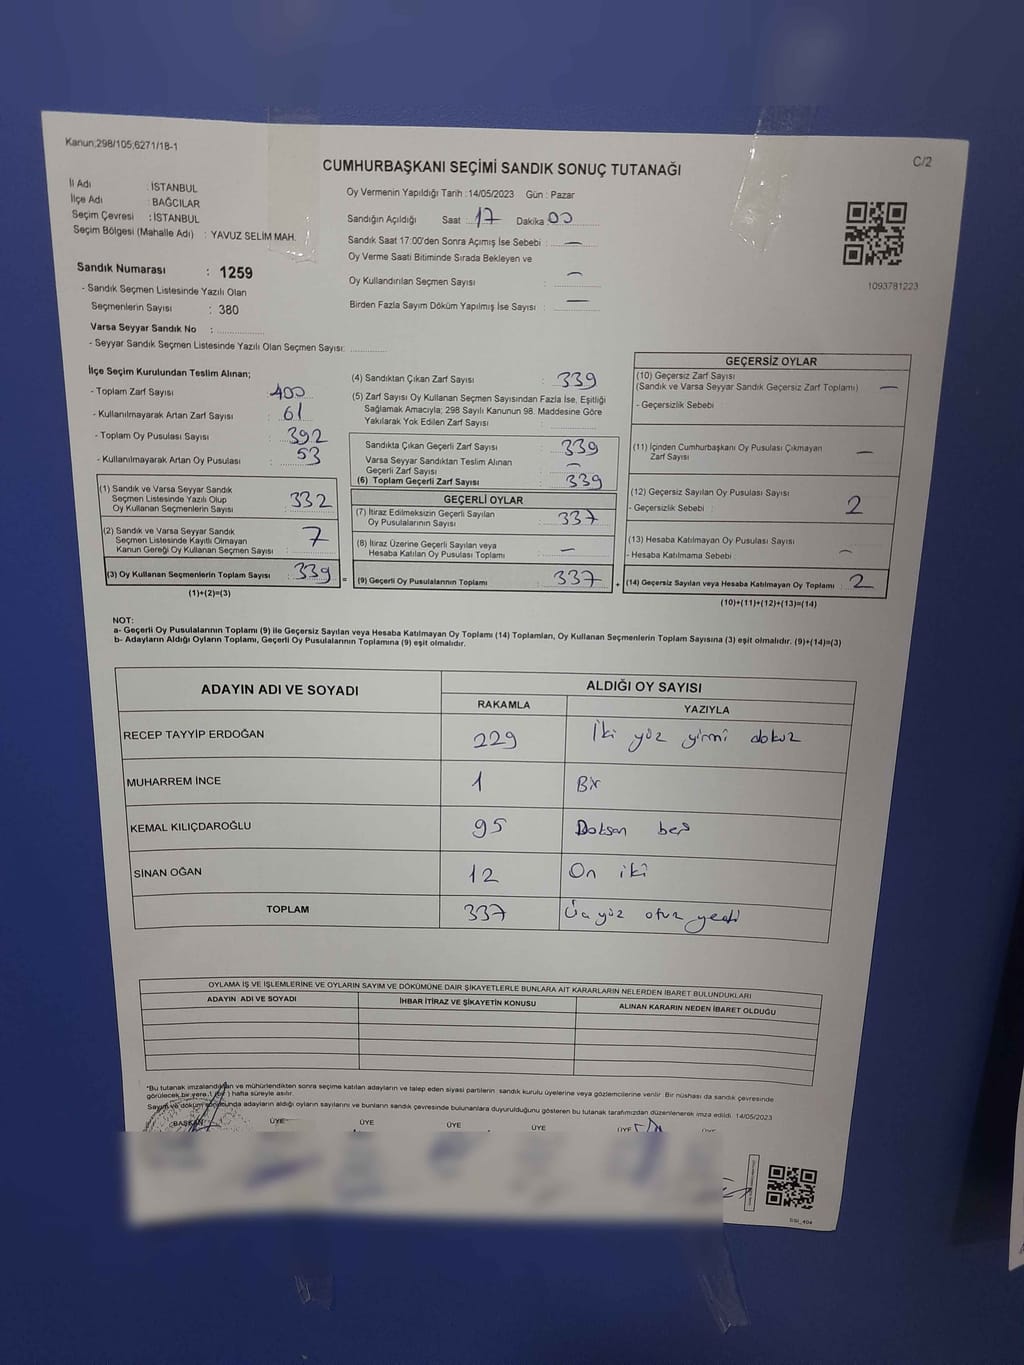 Kanun;298/105;6271/18-1
C/2
CUMHURBAŞKANI SEÇİMİ SANDIK SONUÇ TUTANAĞI
İl Adı : İSTANBUL
İlçe Adı : BAĞCILAR
Seçim Çevresi : İSTANBUL
Seçim Bölgesi (Mahalle Adı) : YAVUZ SELİM MAH.
Sandık Numarası : 1259
- Sandık Seçmen Listesinde Yazılı Olan
Seçmenlerin Sayısı : 380
Varsa Seyyar Sandık No :
- Seyyar Sandık Seçmen Listesinde Yazılı Olan Seçmen Sayısı:
Oy Vermenin Yapıldığı Tarih : 14/05/2023 Gün : Pazar
Sandığın Açıldığı Saat : 17 Dakika : 00
Sandık Saat 17:00'den Sonra Açımış İse Sebebi : —
Oy Verme Saati Bitiminde Sırada Bekleyen ve
Oy Kullandırılan Seçmen Sayısı : —
Birden Fazla Sayım Döküm Yapılmış İse Sayısı : —
1093781223
İlçe Seçim Kurulundan Teslim Alınan;
- Toplam Zarf Sayısı : 400
- Kullanılmayarak Artan Zarf Sayısı : 61
- Toplam Oy Pusulası Sayısı : 392
- Kullanılmayarak Artan Oy Pusulası : 53
(1) Sandık ve Varsa Seyyar Sandık
Seçmen Listesinde Yazılı Olup
Oy Kullanan Seçmenlerin Sayısı : 332
(2) Sandık ve Varsa Seyyar Sandık
Seçmen Listesinde Kayıtlı Olmayan
Kanun Gereği Oy Kullanan Seçmen Sayısı : 7
(3) Oy Kullanan Seçmenlerin Toplam Sayısı : 339
(1)+(2)=(3)
(4) Sandıktan Çıkan Zarf Sayısı : 339
(5) Zarf Sayısı Oy Kullanan Seçmen Sayısından Fazla İse, Eşitliği
Sağlamak Amacıyla; 298 Sayılı Kanunun 98. Maddesine Göre
Yakılarak Yok Edilen Zarf Sayısı :
Sandıkta Çıkan Geçerli Zarf Sayısı : 339
Varsa Seyyar Sandıktan Teslim Alınan
Geçerli Zarf Sayısı : —
(6) Toplam Geçerli Zarf Sayısı : 339
GEÇERLİ OYLAR
(7) İtiraz Edilmeksizin Geçerli Sayılan
Oy Pusulalarının Sayısı : 337
(8) İtiraz Üzerine Geçerli Sayılan veya
Hesaba Katılan Oy Pusulası Toplamı : —
= (9) Geçerli Oy Pusulalarının Toplamı : 337
GEÇERSİZ OYLAR
(10) Geçersiz Zarf Sayısı
(Sandık ve Varsa Seyyar Sandık Geçersiz Zarf Toplamı) —
- Geçersizlik Sebebi :
(11) İçinden Cumhurbaşkanı Oy Pusulası Çıkmayan
Zarf Sayısı —
(12) Geçersiz Sayılan Oy Pusulası Sayısı 2
- Geçersizlik Sebebi :
(13) Hesaba Katılmayan Oy Pusulası Sayısı
- Hesaba Katılmama Sebebi : —
+ (14) Geçersiz Sayılan veya Hesaba Katılmayan Oy Toplamı : 2
(10)+(11)+(12)+(13)=(14)
NOT:
a- Geçerli Oy Pusulalarının Toplamı (9) ile Geçersiz Sayılan veya Hesaba Katılmayan Oy Toplamı (14) Toplamları, Oy Kullanan Seçmenlerin Toplam Sayısına (3) eşit olmalıdır. (9)+(14)=(3)
b- Adayların Aldığı Oyların Toplamı, Geçerli Oy Pusulalarının Toplamına (9) eşit olmalıdır.
ADAYIN ADI VE SOYADI ALDIĞI OY SAYISI
RAKAMLA YAZIYLA
RECEP TAYYİP ERDOĞAN 229 İki yüz yirmi dokuz
MUHARREM İNCE 1 Bir
KEMAL KILIÇDAROĞLU 95 Doksan beş
SİNAN OĞAN 12 On iki
TOPLAM 337 Üç yüz otuz yedi
OYLAMA İŞ VE İŞLEMLERİNE VE OYLARIN SAYIM VE DÖKÜMÜNE DAİR ŞİKAYETLERLE BUNLARA AİT KARARLARIN NELERDEN İBARET BULUNDUKLARI
ADAYIN ADI VE SOYADI İHBAR İTİRAZ VE ŞİKAYETİN KONUSU ALINAN KARARIN NEDEN İBARET OLDUĞU
*Bu tutanak imzalandıktan ve mühürlendikten sonra seçime katılan adayların ve talep eden siyasi partilerin sandık kurulu üyelerine veya gözlemcilerine verilir. Bir nüshası da sandık çevresinde
görülecek bir yere 1 (bir) hafta süreyle asılır.
Sayım ve döküm sonucunda adayların aldığı oyların sayılarını ve bunların sandık çevresinde bulunanlara duyurulduğunu gösteren bu tutanak tarafımızdan düzenlenerek imza edildi. 14/05/2023
BAŞKAN ÜYE ÜYE ÜYE ÜYE ÜYE
SSI_404